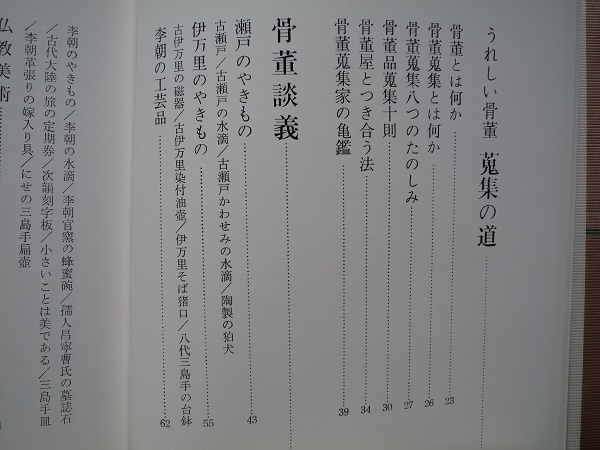 うれしい骨董 蒐集の道
骨董とは何か 23
骨董蒐集とは何か 26
骨董蒐集八つのたのしみ 27
骨董品蒐集十則 30
骨董屋とつき合う法 34
骨董蒐集家の亀鑑 39
骨董談義
瀬戸のやきもの 43
古瀬戸／古瀬戸の水滴／古瀬戸かわせみの水滴／陶製の狛犬
伊万里のやきもの 55
古伊万里の磁器／古伊万里染付油壺／伊万里そば猪口／八代三島手の台鉢
李朝の工芸品 62
李朝のやきもの／李朝の水滴／李朝官窯の蜂蜜碗／孺人昌寧曹氏の墓誌石
／古代大陸の旅の定期券／次韻刻字板／小さいことは美である／三島手皿
／李朝革張りの嫁入り具／にせの三島手扁壺
仏教美術